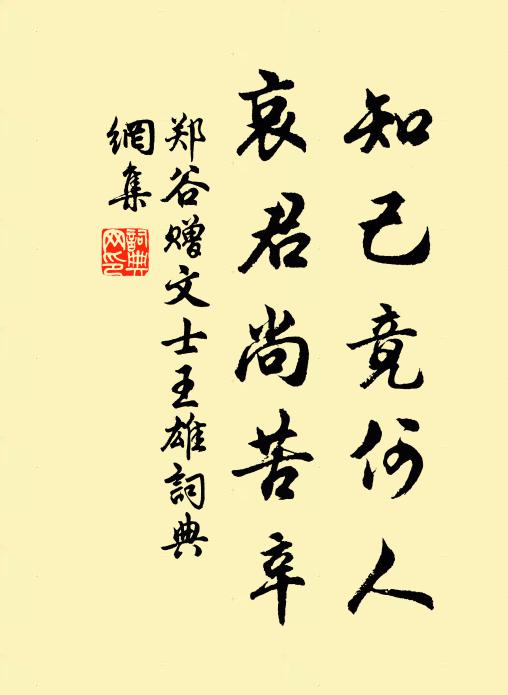 知己竟何人
哀君尚苦辛
郑谷赠文士王雄詞典
網集
詞典網印